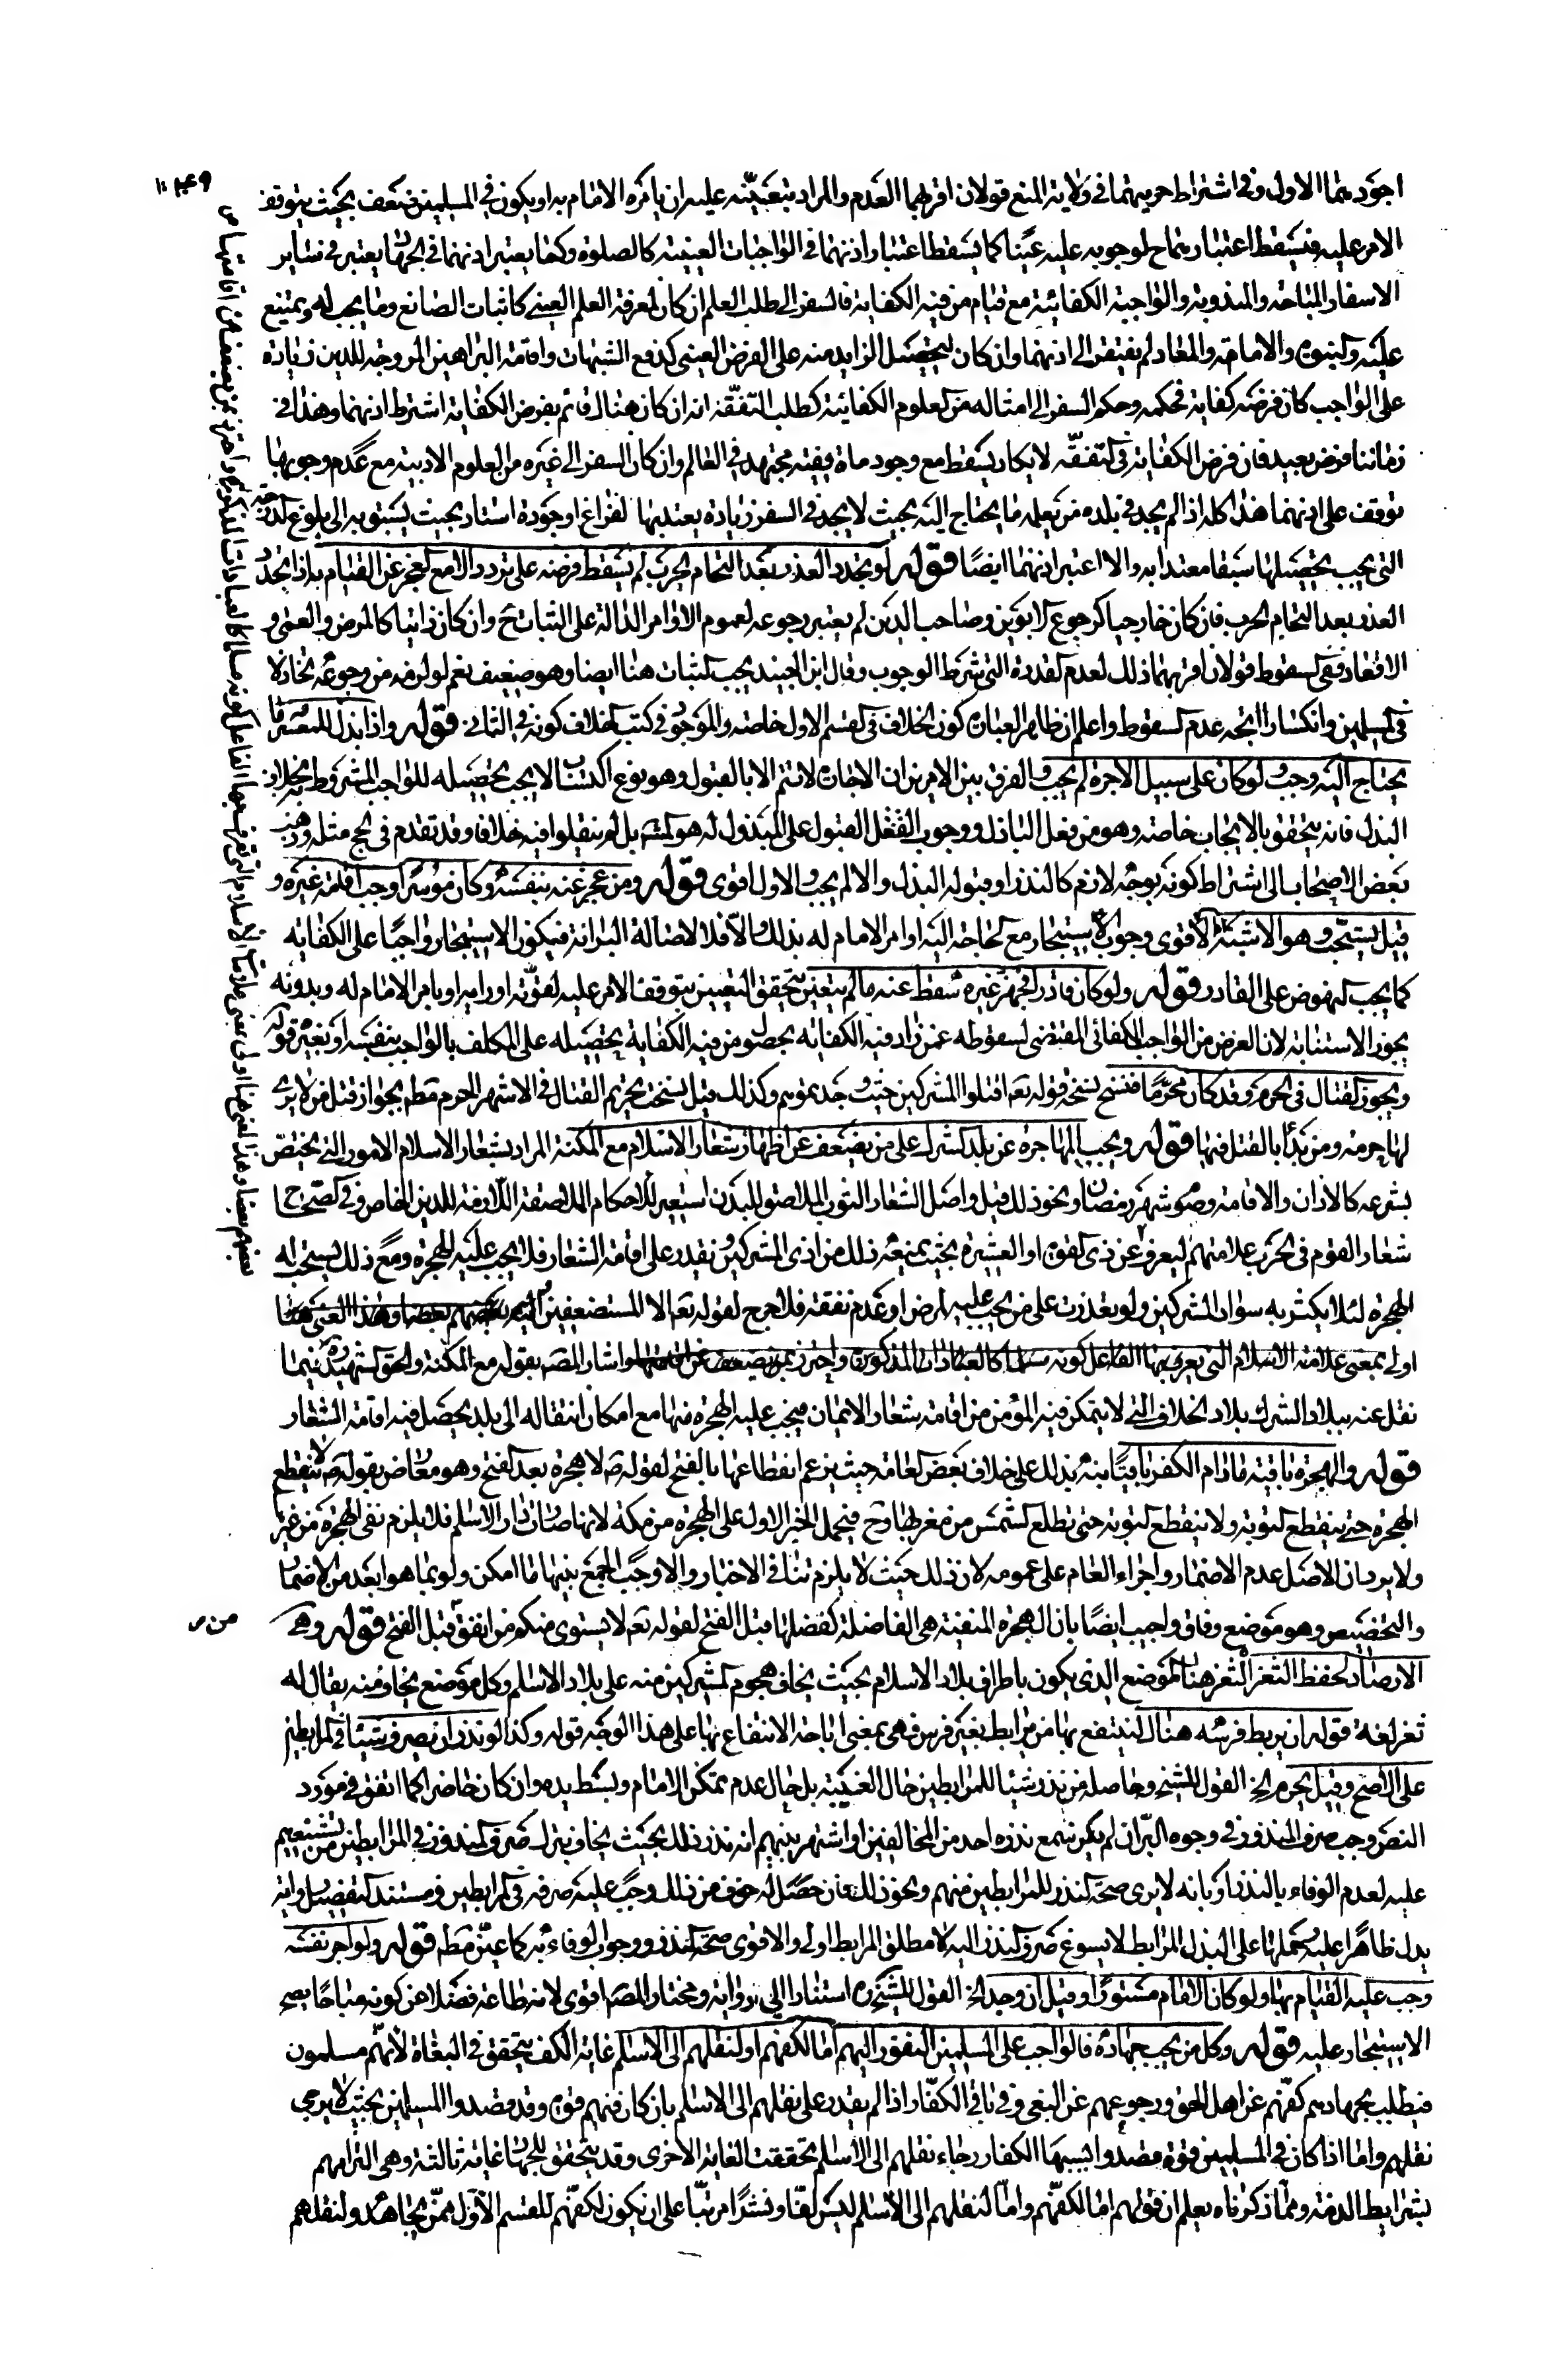 اجودهما الاول وفى اشتراط حريتهما فى ولاية المنع قولان اقربهما العدم والمراد بتعينه عليه ان يامره الامام به او يكون فى المسلمين ضعف بحيث يتوقف
الامر عليه فيسقط اعتبار رضاهما ح لوجوبه عليه عينا كما يسقط اعتبار اذنهما فى الواجبات العينية كالصلوة وكما يعتبر اذنهما فى الجهاد يعتبر فى سائر
الاسفار المباحة والمندوبة والواجبة الكفائية مع قيام من فيه الكفاية فالسفر الى طلب العلم ان كان لمعرفة العلم العينى كاثبات الصانع وما يجب له ويمتنع
عليه والنبوة والامامة والمعاد لم يفتقر الى اذنهما وان كان لتحصيل الزايد منه على الفرض العينى كدفع الشبهات واقامة البراهين المروجة للدين زيادة
على الواجب كان فرضه كفاية فحكمه وحكم السفر الى امثاله من العلوم الكفائية كطلب التفقه انه ان كان هناك قائم بفرض الكفاية اشترط اذنهما وهذا فى
زماننا فرض بعيد فان فرض الكفاية فى التفقه لا يكاد يسقط مع وجود ماة فقيه مجتهد فى العالم وان كان السفر الى غيره من العلوم الادبية مع عدم وجوبها
توقف على اذنهما هذا كله اذا لم يجد فى بلده من يعلمه ما يحتاج اليه بحيث لا يجد فى السفر زيادة يعتد بها لفراغ او جودة استاد بحيث يسبق به الى بلوغ الدرجة
التى يجب تحصيلها سبقا معتدا به والا اعتبر اذنهما ايضا قوله لو تجدد العذر بعد التحام الحرب لم يسقط فرضه على تردد الا مع العجز عن القيام به اذا تجدد
العذر بعد التحام الحرب فان كان خارجيا كرجوع الابوين وصاحب الدين لم يعتبر رجوعه لعموم الاوامر الدالة على الثبات ح وان كان ذاتيا كالمرض والعمى و
الاقعاد ففى السقوط قولان اقربهما ذلك لعدم القدرة التى شرط الوجوب وقال ابن الجنيد يجب الثبات هنا ايضا وهو ضعيف نعم لو لزمه من رجوعه تخاذلا
فى المسلمين وانكسارا اتجه عدم السقوط واعلم ان ظاهر العبارة كون الخلاف فى القسم الاول خاصة والموجود فى كتب الخلاف كونه فى الثانى قوله واذا بذل للمعسر ما
يحتاج اليه وجب ولو كان على سبيل الاجرة لم يجب الفرق بين الامرين ان الاجارة لا تتم الا بالقبول وهو نوع اكتساب لا يجب تحصيله للواجب المشروط به بخلاف
البذل فانه يتحقق بالايجاب خاصة وهو من فعل الباذل ووجوب الفعل القبول على المبذول له هو بل لم ينقلوا فيه خلافا وقد تقدم فى الحج مثله وذهب
بعض الاصحاب الى اشتراط كونه بوجه لازم كالنذر او قبوله البذل والا لم يجب والاول اقوى قوله ومن عجز عنه بنفسه وكان موسرا وجب اقامة غيره و
قيل يستحب وهو الاشبه الاقوى وجوب الاستيجار مع الحاجة اليه او امر الامام له بذلك والا فلا لاصالة البرائة فيكون الاستيجار واجبا على الكفاية
كما يجب النهوض على القادر قوله ولو كان قادرا فجهز غيره سقط عنه ما لم يتعين يتحقق التعيين بتوقف الامر عليه لقوته او رايه او بامر الامام له وبدونه
يجوز الاستنابة لان الغرض من الواجب الكفائى المقتضى لسقوطه عمن زاد فيه الكفاية بحصول من فيه الكفاية تحصيله على المكلف بالواجب بنفسه او بغيره قوله
ويجوز القتال فى الحرم وقد كان محرما فنسخ نسخه قوله تعم اقتلوا المشركين حيث وجدتموهم وكذلك قيل نسخت تحريم القتال فى الاشهر الحرم مطم بجواز قتل من لا يرى
لها حرمة ومن بدأ بالقتل فيها قوله ويجب المهاجرة عن بلد الشرك على من يضعف عن اظهار شعار الاسلام مع المكنة المراد بشعار الاسلام الامور التى تختص
بشرعه كالاذان والاقامة وصوم شهر رمضان ونحو ذلك قيل واصل الشعار الثوب الملاصق للبدن استعير للاحكام الملاصقة اللازمة للدين الخاص وفى الصحاح
شعار القوم فى الحرب علامتهم ليعرف عن ذى القوة او العشيرة بحيث يمنعه ذلك من اذى المشركين ويقدر على اقامة الشعار فلا يجب عليه الهجرة ومع ذلك يستحب له
الهجرة لئلا يكثر به سواد المشركين ولو تعذرت على من يجب عليه لمرض او عدم نفقة فلا حرج لقوله تعم الا المستضعفين الاية بعضهم بعضا وهذا المعنى هنا
اولى بمعنى علامة الاسلام التى يعرف بها الفاعل كونه مسلما كالعبادات المذكورة واحترز بمن يضعف عن اقامتها واشار المصم بقوله مع المكنة والحق الشهيد ره فيما
نقل عنه ببلاد الشرك بلاد الخلاف التى لا يتمكن فيها المؤمن من اقامة شعار الايمان فيجب عليه الهجرة منها مع امكان انتقاله الى بلد يحصل فيه اقامة الشعار
قوله والهجرة باقية مادام الكفر باقيا نبه بذلك على خلاف بعض العامة حيث زعم انقطاعها بالفتح لقوله ص لا هجرة بعد الفتح وهو معارض بقوله ص لا ينقطع
الهجرة حتى ينقطع التوبة ولا ينقطع التوبة حتى تطلع الشمس من مغربها وح فيحمل الخبر الاول على الهجرة من مكة لانها صارت دار الاسلم فلا يلزم نفى الهجرة من غيرها
ولا يرد ان الاصل عدم الاضمار واجراء العام على عمومه لان ذلك حيث لا يلزم تنافى الاخبار والا وجب الجمع بينها ما امكن ولو بما هو ابعد من الاضمار
والتخصيص وهو موضع وفاق واجيب ايضا بان الهجرة المنفية هى الفاضلة كفضلها قبل الفتح لقوله تعم لا يستوى منكم من انفق قبل الفتح قوله وهى
من ر
الارصاد لحفظ الثغر الثغر هنا الموضع الذى يكون باطراف بلاد الاسلام بحيث يخاف هجوم المشركين منه على بلاد الاسلم وكل موضع يخاف منه يقال له
ثغر لغة قوله ان يربط فرسه هناك لينتفع بها من يرابط بغير فرس فهى بمعنى اباحة الانتفاع بها على هذا الوجه قوله وكذا لو نذر ان يصرف شيئا فى المرابطين
على الاصح وقيل يحرم الخ القول للشيخ وحاصله من نذر شيئا للمرابطين حال الغيبة بل حال عدم تمكن الامام وبسط يده وان كان حاضرا كما اتفق فى مورد
النص وجب صرف المنذور فى وجوه البر ان لم يكن سمع نذره احد من المخالفين او اشتهر بينهم انه نذر ذلك بحيث يخاف بترك صرف المنذور فى المرابطين من تشنيعهم
عليه لعدم الوفاء بالنذر او بانه لا يرى صحة النذر للمرابطين منهم ونحو ذلك فان حصل له خوف من ذلك وجب عليه صرفه فى المرابطين ومستند التفصيل رواية
يدل ظاهرا عليه وحملها على البذل المرابط لا يسوغ صرف النذر اليه لا مطلق المرابط اولى والاقوى صحة النذر ووجوب الوفاء به كما عين مطم قوله ولو اجر نفسه
وجب عليه القيام بها ولو كان الامام مستورا وقيل ان وجد الخ القول للشيخ ره استنادا الى رواية ومختار المصم اقوى لانه طاعة فضلا عن كونه مباحا يصح
الاستيجار عليه قوله وكل من يجب جهاده فالواجب على المسلمين النفور اليهم اما لكفهم او لنقلهم الى الاسلم غاية الكف يتحقق فى البغاة لانهم مسلمون
فيطلب بجهادهم كفهم عن اهل الحق ورجوعهم عن البغى وفى باقى الكفار اذا لم يقدر على نقلهم الى الاسلم بان كان فيهم قوة وقد قصدوا المسلمين بحيث لا يرجى
نقلهم واما اذا كان فى المسلمين قوة قصدوا بسببها الكفار رجاء نقلهم الى الاسلم تحققت الغاية الاخرى وقد يتحقق للجهاد غاية ثالثة وهى التزامهم
بشرايط الذمة ومما ذكرناه يعلم ان قولهم اما لكفهم واما لنقلهم الى الاسلم ليس لفا ونشرا مرتبا على ان يكون لكفهم للقسم الاول ممن يجاهد ولنقلهم